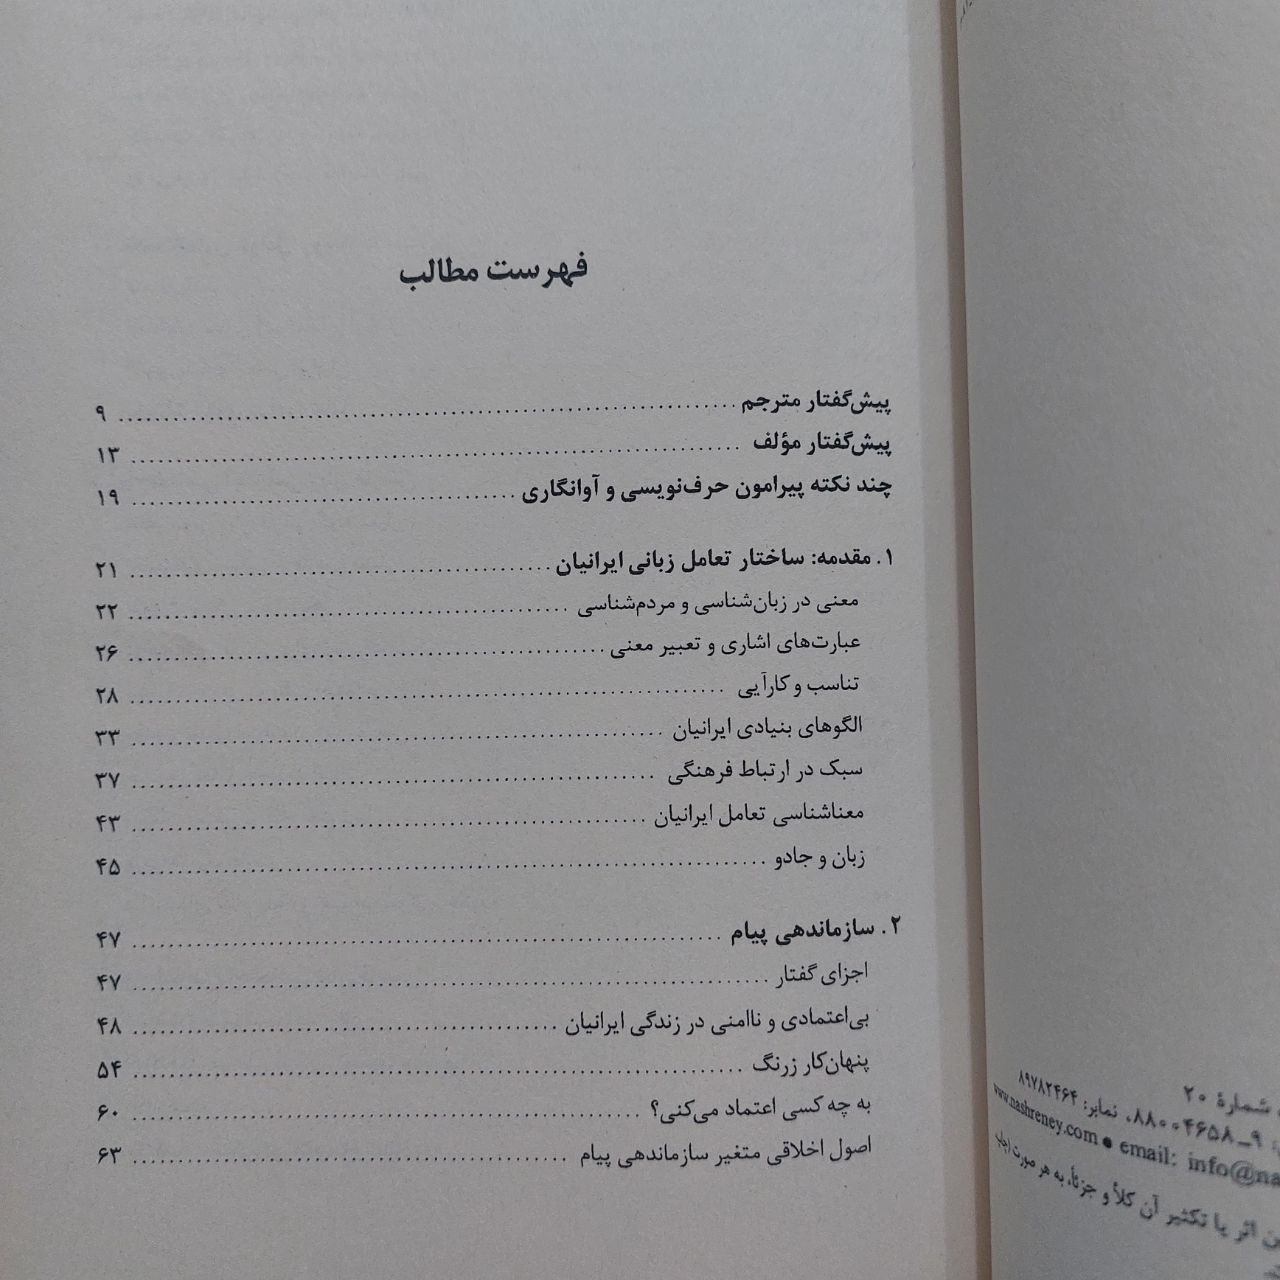 فهرست مطالب
پیش‌گفتار مترجم ........ ۹
پیش‌گفتار مؤلف ........ ۱۳
چند نکته پیرامون حرف‌نویسی و آوانگاری ........ ۱۹
۱. مقدمه: ساختار تعامل زبانی ایرانیان ........ ۲۱
معنی در زبان‌شناسی و مردم‌شناسی ........ ۲۲
عبارت‌های اشاری و تعبیر معنی ........ ۲۶
تناسب و کارآیی ........ ۲۸
الگوهای بنیادی ایرانیان ........ ۳۳
سبک در ارتباط فرهنگی ........ ۳۷
معناشناسی تعامل ایرانیان ........ ۴۳
زبان و جادو ........ ۴۵
۲. سازماندهی پیام ........ ۴۷
اجزای گفتار ........ ۴۷
بی‌اعتمادی و ناامنی در زندگی ایرانیان ........ ۴۸
پنهان‌کار زرنگ ........ ۵۴
به چه کسی اعتماد می‌کنی؟ ........ ۶۰
اصول اخلاقی متغیر سازماندهی پیام ........ ۶۳
شمارهٔ ۲۰
۹ـ۸۸۰۰۴۶۵۸، نمابر: ۸۹۷۸۲۴۶۴
www.nashreney.com • email: info@na
اثر یا تکثیر آن کلاً و جزئاً، به هر صورت (چاپ